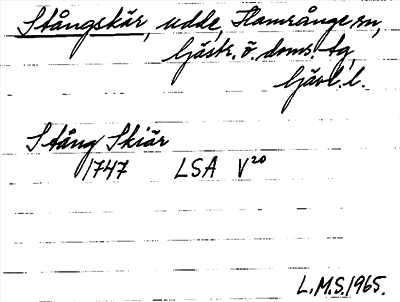 Stångskär, udde, Hamrånge sn,
Gästr. ö. doms. tg,
Gävl. l.
Stång Skiär
1747 LSA V20
L.M.S. 1965.